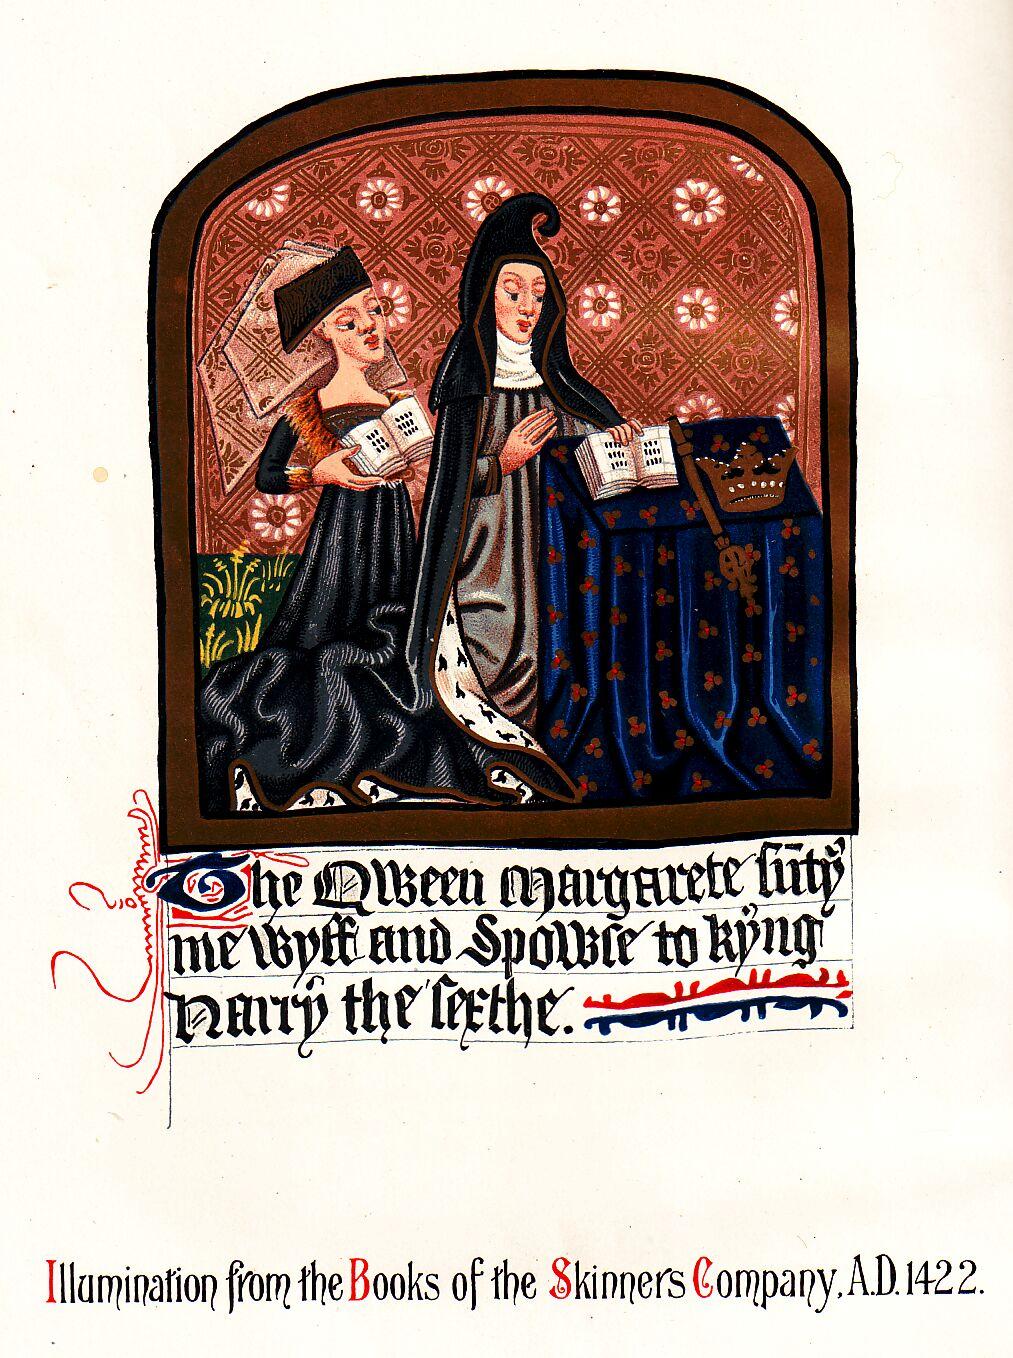 The Qween Margarete sūtȳ
me wyff and Spowse to kyng
Harrȳ the sexthe.
Illumination from the Books of the Skinners Company, A.D. 1422.